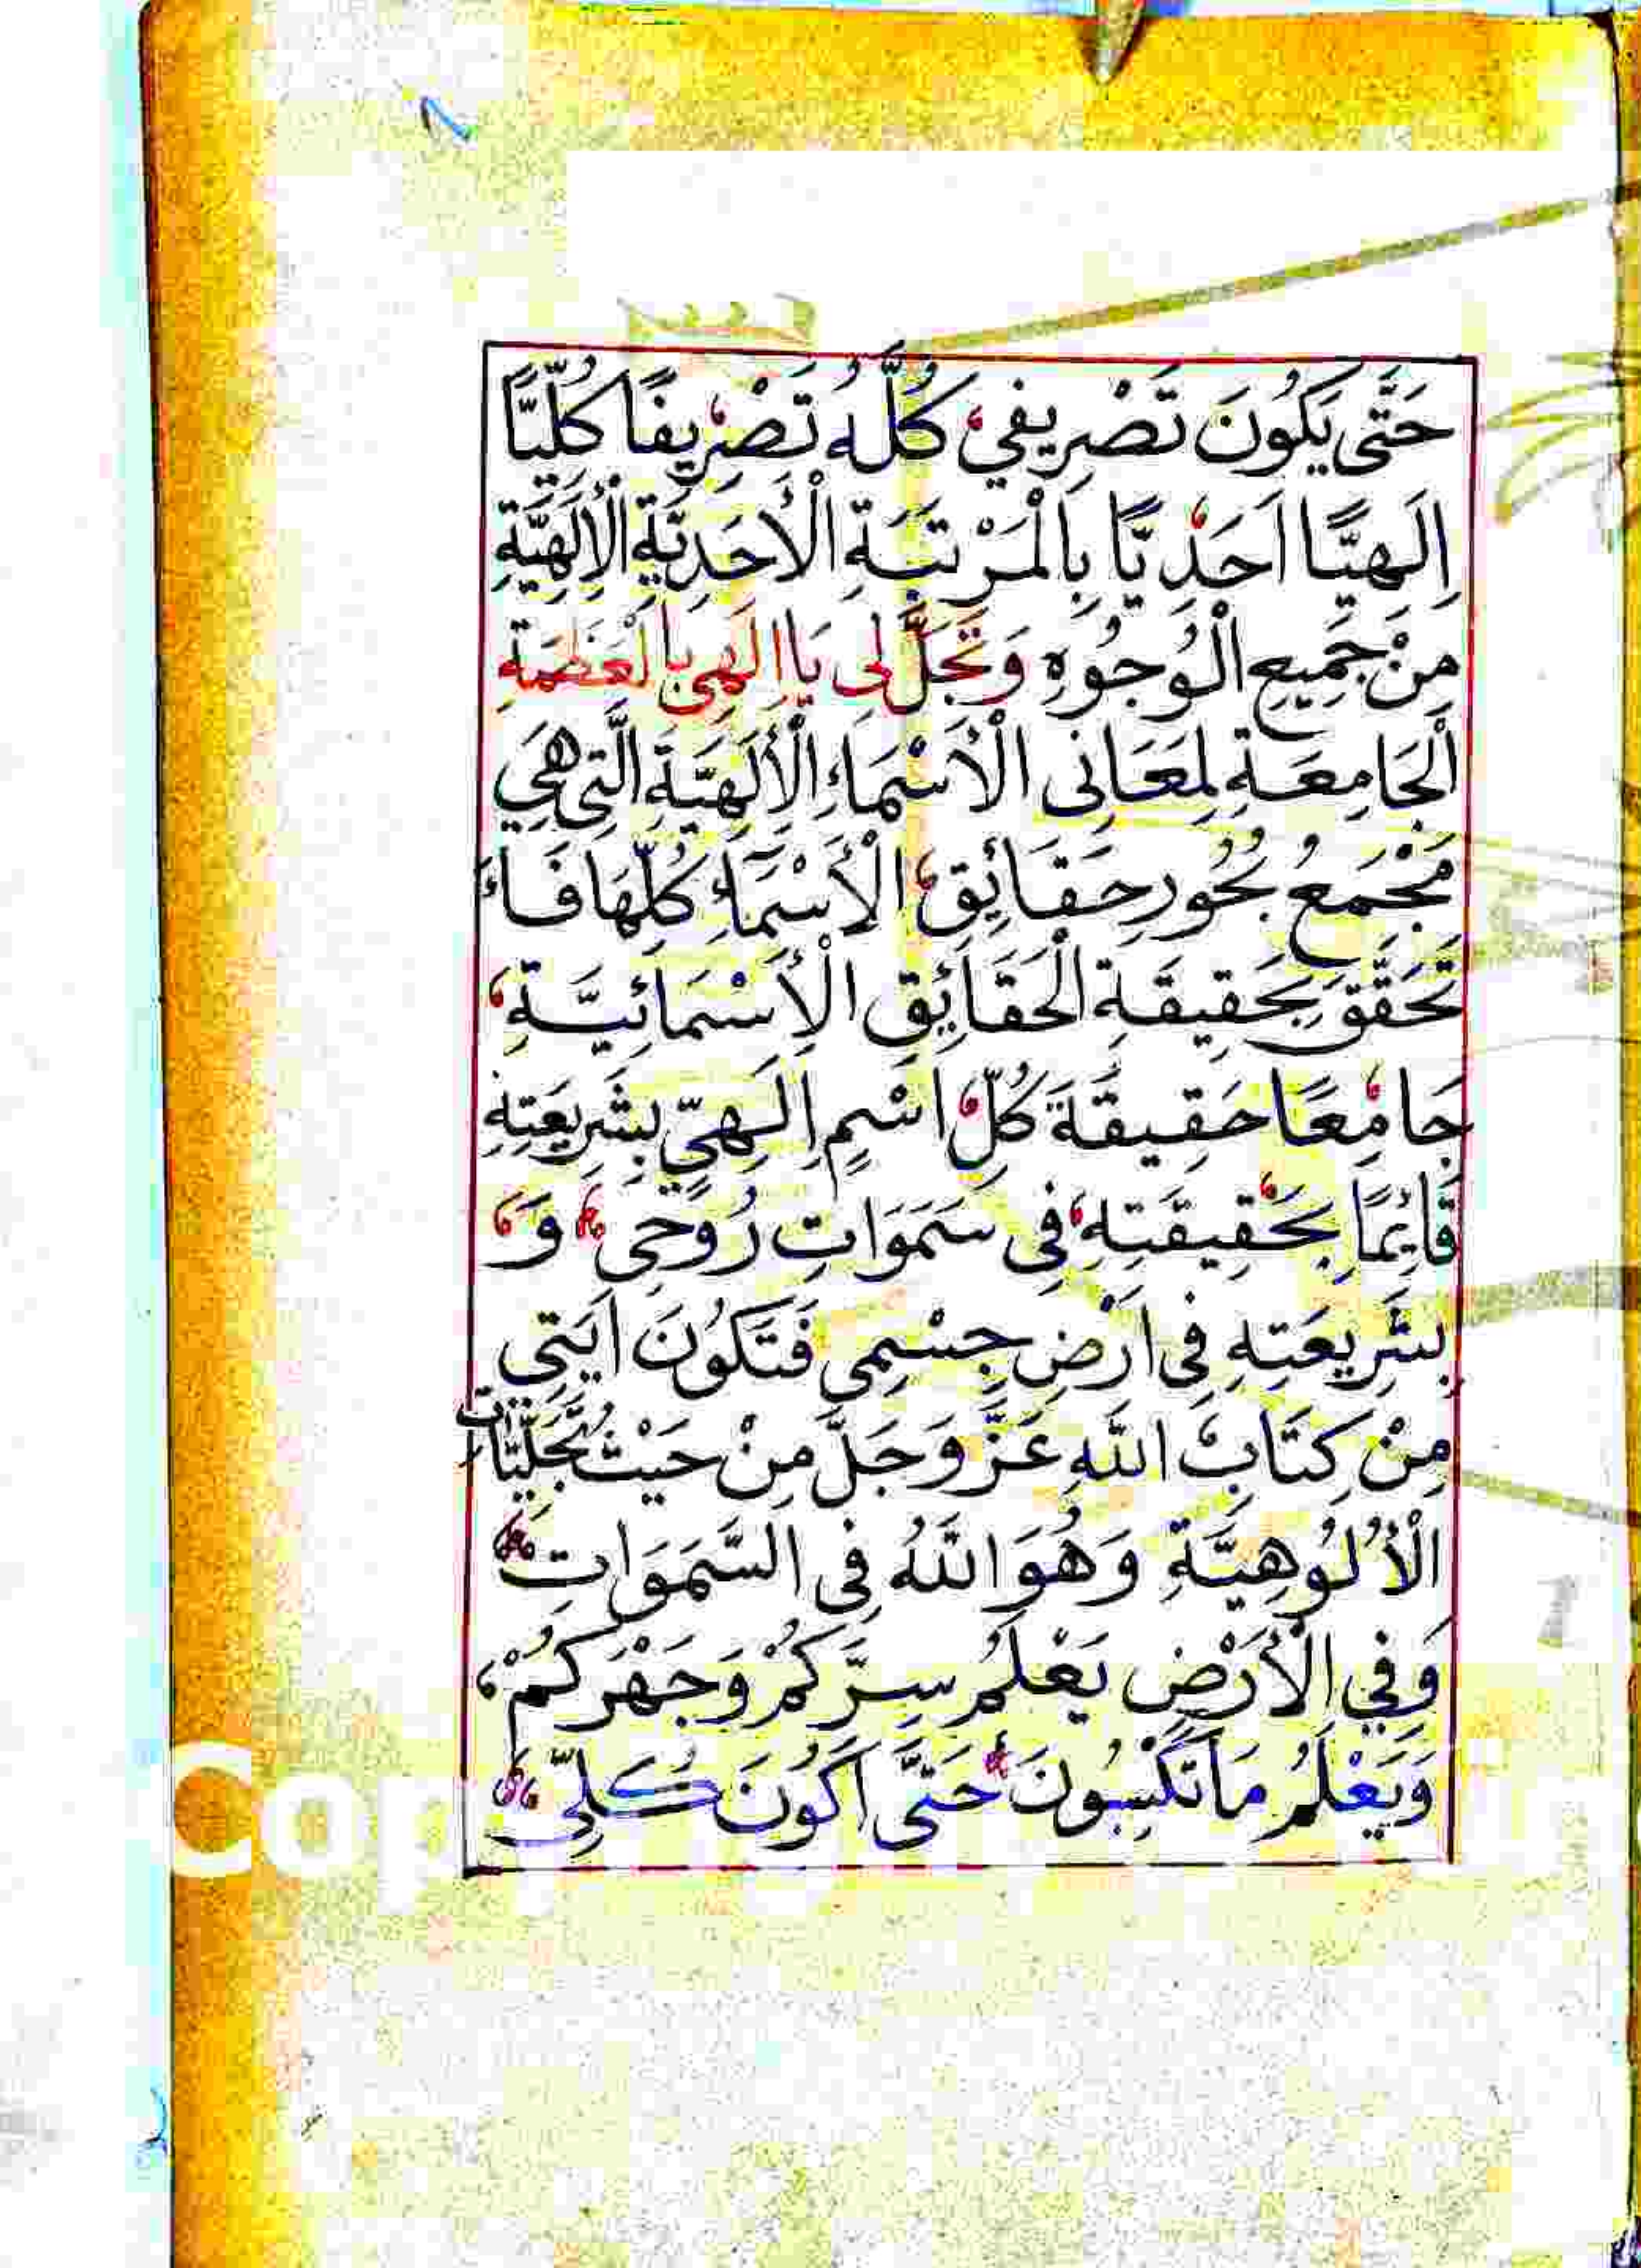 حَتَّى يَكُونَ تَصْرِيفِي كُلُّهُ تَصْرِيفًا كُلِّيًّا
اِلَهِيًّا اَحَدِيًّا بِالْمَرْتَبَةِ الْأَحَدِيَّةِ الْإِلَهِيَّةِ
مِنْ جَمِيعِ الْوُجُوُهِ وَتَجَلَّ لِى يَا اِلَهِى بِالْعَظَمَةِ
الْجَامِعَةِ لِمَعَانِى الْأَسْمَاءِ الْأِلَهِيَّةِ الَّتِى هِيَ
مَجْمَعُ بُحُورِ حَقَائِقِ الْأَسْمَاءِ كُلِّهَا فَاءَ
تَحَقَّقَ بِحَقِيقَةِ الْحَقَائِقِ الْأَسْمَائِيَّةِ
جَامِعًا حَقِيقَةَ كُلِّ اسْمٍ اِلَهِيٍّ بِشَرِيعَتِهِ
قَائِمًا بِحَقِيقَتِهِ فِى سَمَوَاتِ رُوحِى وَ
بِشَرِيعَتِهِ فِى اَرْضِ جِسْمِى فَتَكُونَ اَيَتِى
مِنْ كِتَابِ اللَّهِ عَزَّ وَجَلَّ مِنْ حَيْثُ تَجَلِّيَّات
الْأُلُوهِيَّةِ وَهُوَ اللَّهُ فِى السَّمَوَاتِ
وَفِي الْأَرْضِ يَعْلَمُ سِرَّكُمْ وَجَهْرَكُمْ
وَيَعْلَمُ مَا تَكْسِبُونَ حَتَّى اَكُونَ كُلِّى
Cop